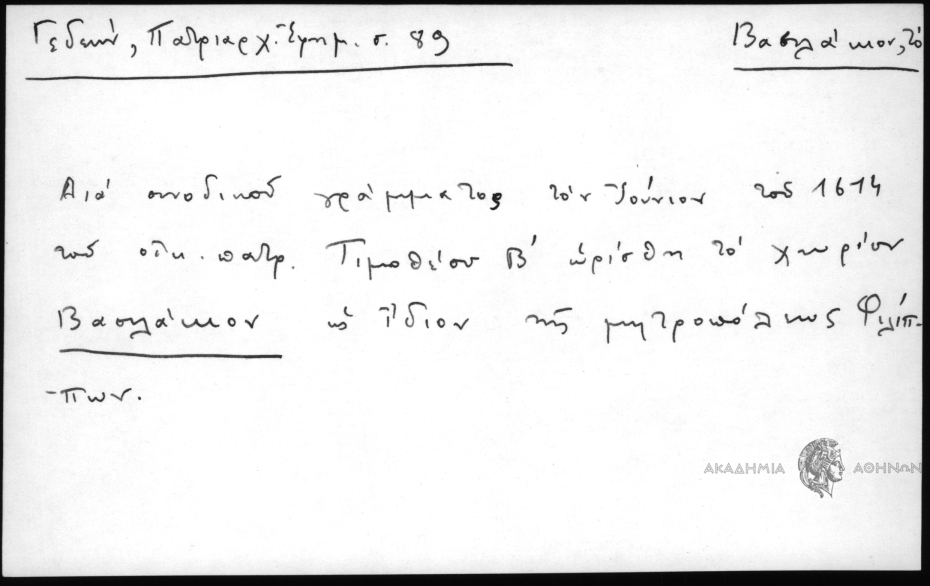 Γεδεών, Πατριαρχ. Ἐφημ. σ. 89
Βασιλάκιον, τὸ
Διὰ συνοδικοῦ γράμματος τὸν Ἰούνιον τοῦ 1614
τοῦ οἰκ. πατρ. Τιμοθέου Β΄ ὡρίσθη τὸ χωρίον
Βασιλάκιον ὡς ἴδιον τῆς μητροπόλεως Φιλίπ-
-πων.
ΑΚΑΔΗΜΙΑ ΑΘΗΝΩΝ